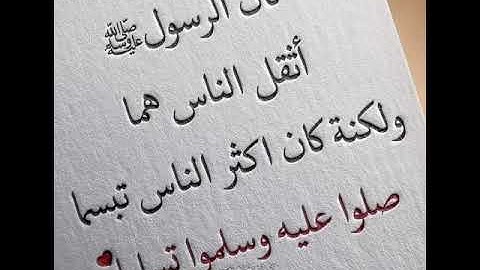 كان الرسول ﷺ
أثقل الناس هما
ولكنة كان اكثر الناس تبسما
صلوا عليه وسلموا